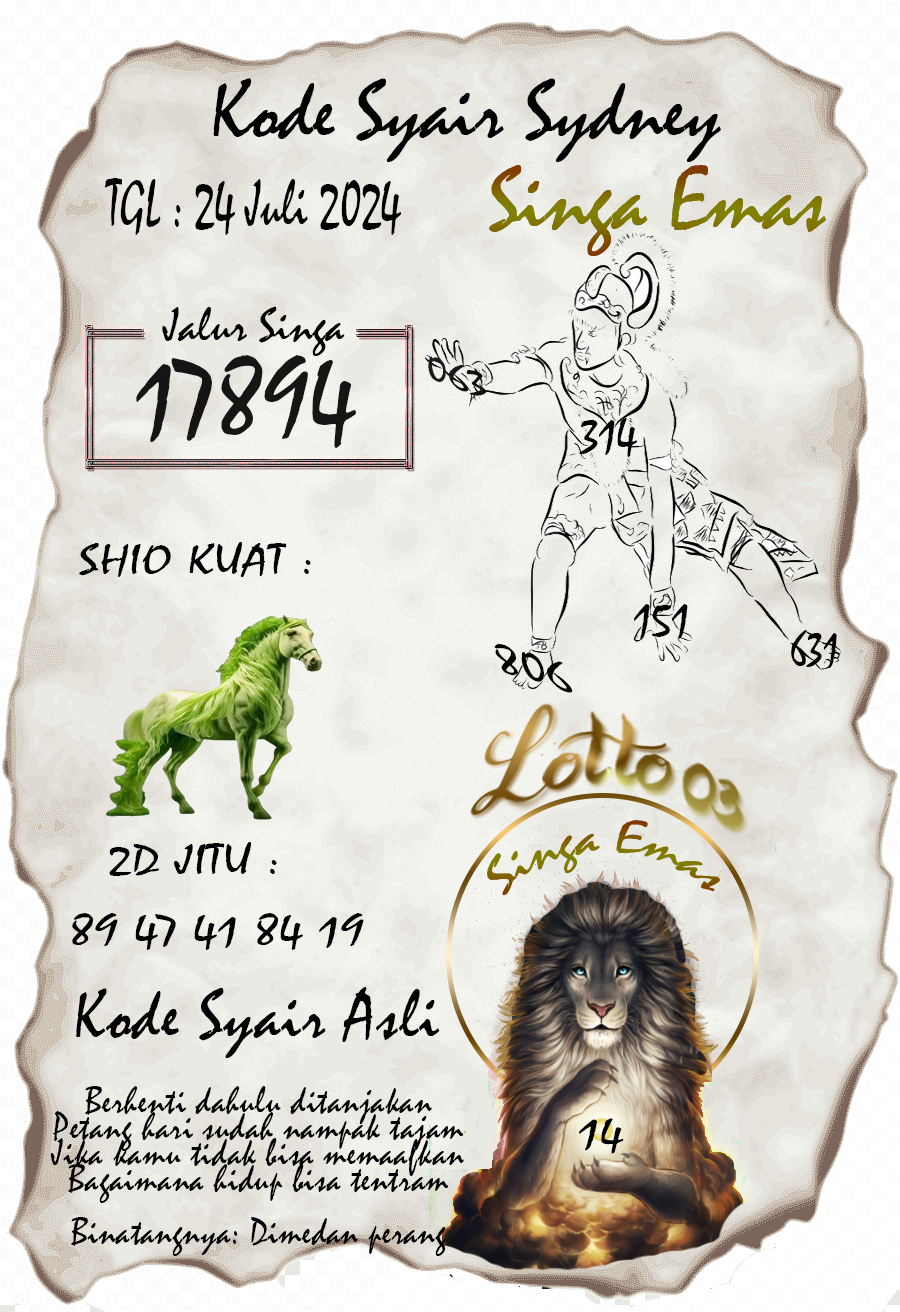 Kode Syair Sydney
TGL : 24 Juli 2024
Singa Emas
Jalur Singa
17894
063
314
151
806
631
SHIO KUAT :
Lotto 03
Singa Emas
14
2D JITU :
89 47 41 84 19
Kode Syair Asli
Berhenti dahulu ditanjakan
Petang hari sudah nampak tajam
Jika kamu tidak bisa memaafkan
Bagaimana hidup bisa tentram
Binatangnya: Dimedan perang